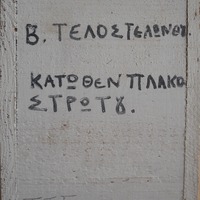 Β. ΤΕΛΟΣ ΤΕΛΩΝΟΥ.
ΚΑΤΩΘΕΝ ΠΛΑΚΟ
ΣΤΡΩΤΟΥ.